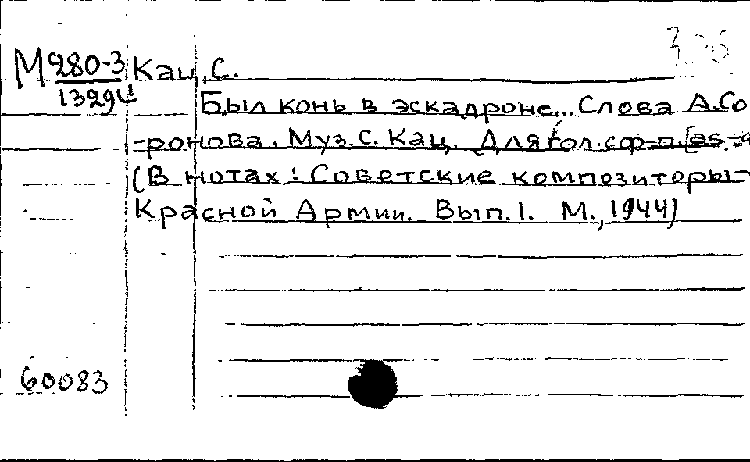 М 280-3 Кац, С.
1329ч
Был конь в эскадроне... Слова А. Со
-ронова. Муз. С. Кац. Для гол. с ф-п. [as
(В нотах: Советские композиторы-
Красной Армии. Вып. I. М., 1944)
60083